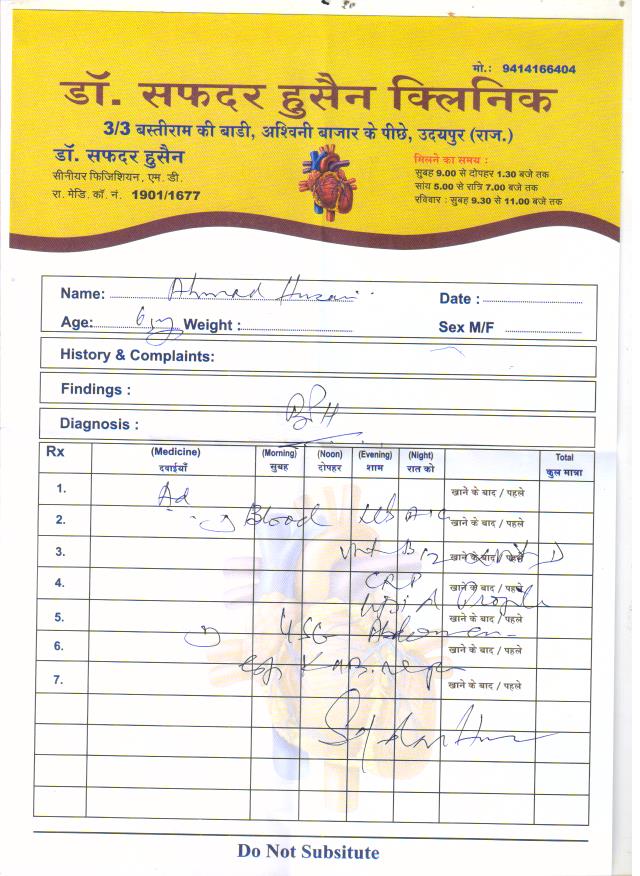 मो.: 9414166404
डॉ. सफदर हुसैन क्लिनिक
3/3 बस्तीराम की बाडी, अश्विनी बाजार के पीछे, उदयपुर (राज.)
डॉ. सफदर हुसैन
सीनीयर फिजिशियन, एम. डी.
रा. मेडि. कॉ. नं. 1901/1677
मिलने का समय :
सुबह 9.00 से दोपहर 1.30 बजे तक
सांय 5.00 से रात्रि 7.00 बजे तक
रविवार : सुबह 9.30 से 11.00 बजे तक
Name: Ahmad Husain Date :
Age: Weight : Sex M/F
History & Complaints:
Findings :
Diagnosis : BPH
Rx (Medicine) (Morning) (Noon) (Evening) (Night) Total
दवाईयाँ सुबह दोपहर शाम रात को कुल मात्रा
1. Ad खाने के बाद / पहले
2. Blood खाने के बाद / पहले
3. B12 D खाने के बाद / पहले
4. CRP खाने के बाद / पहले
Lipid Profile
5. खाने के बाद / पहले
USG Abdomen
6. खाने के बाद / पहले
KUB
7. खाने के बाद / पहले
Do Not Subsitute